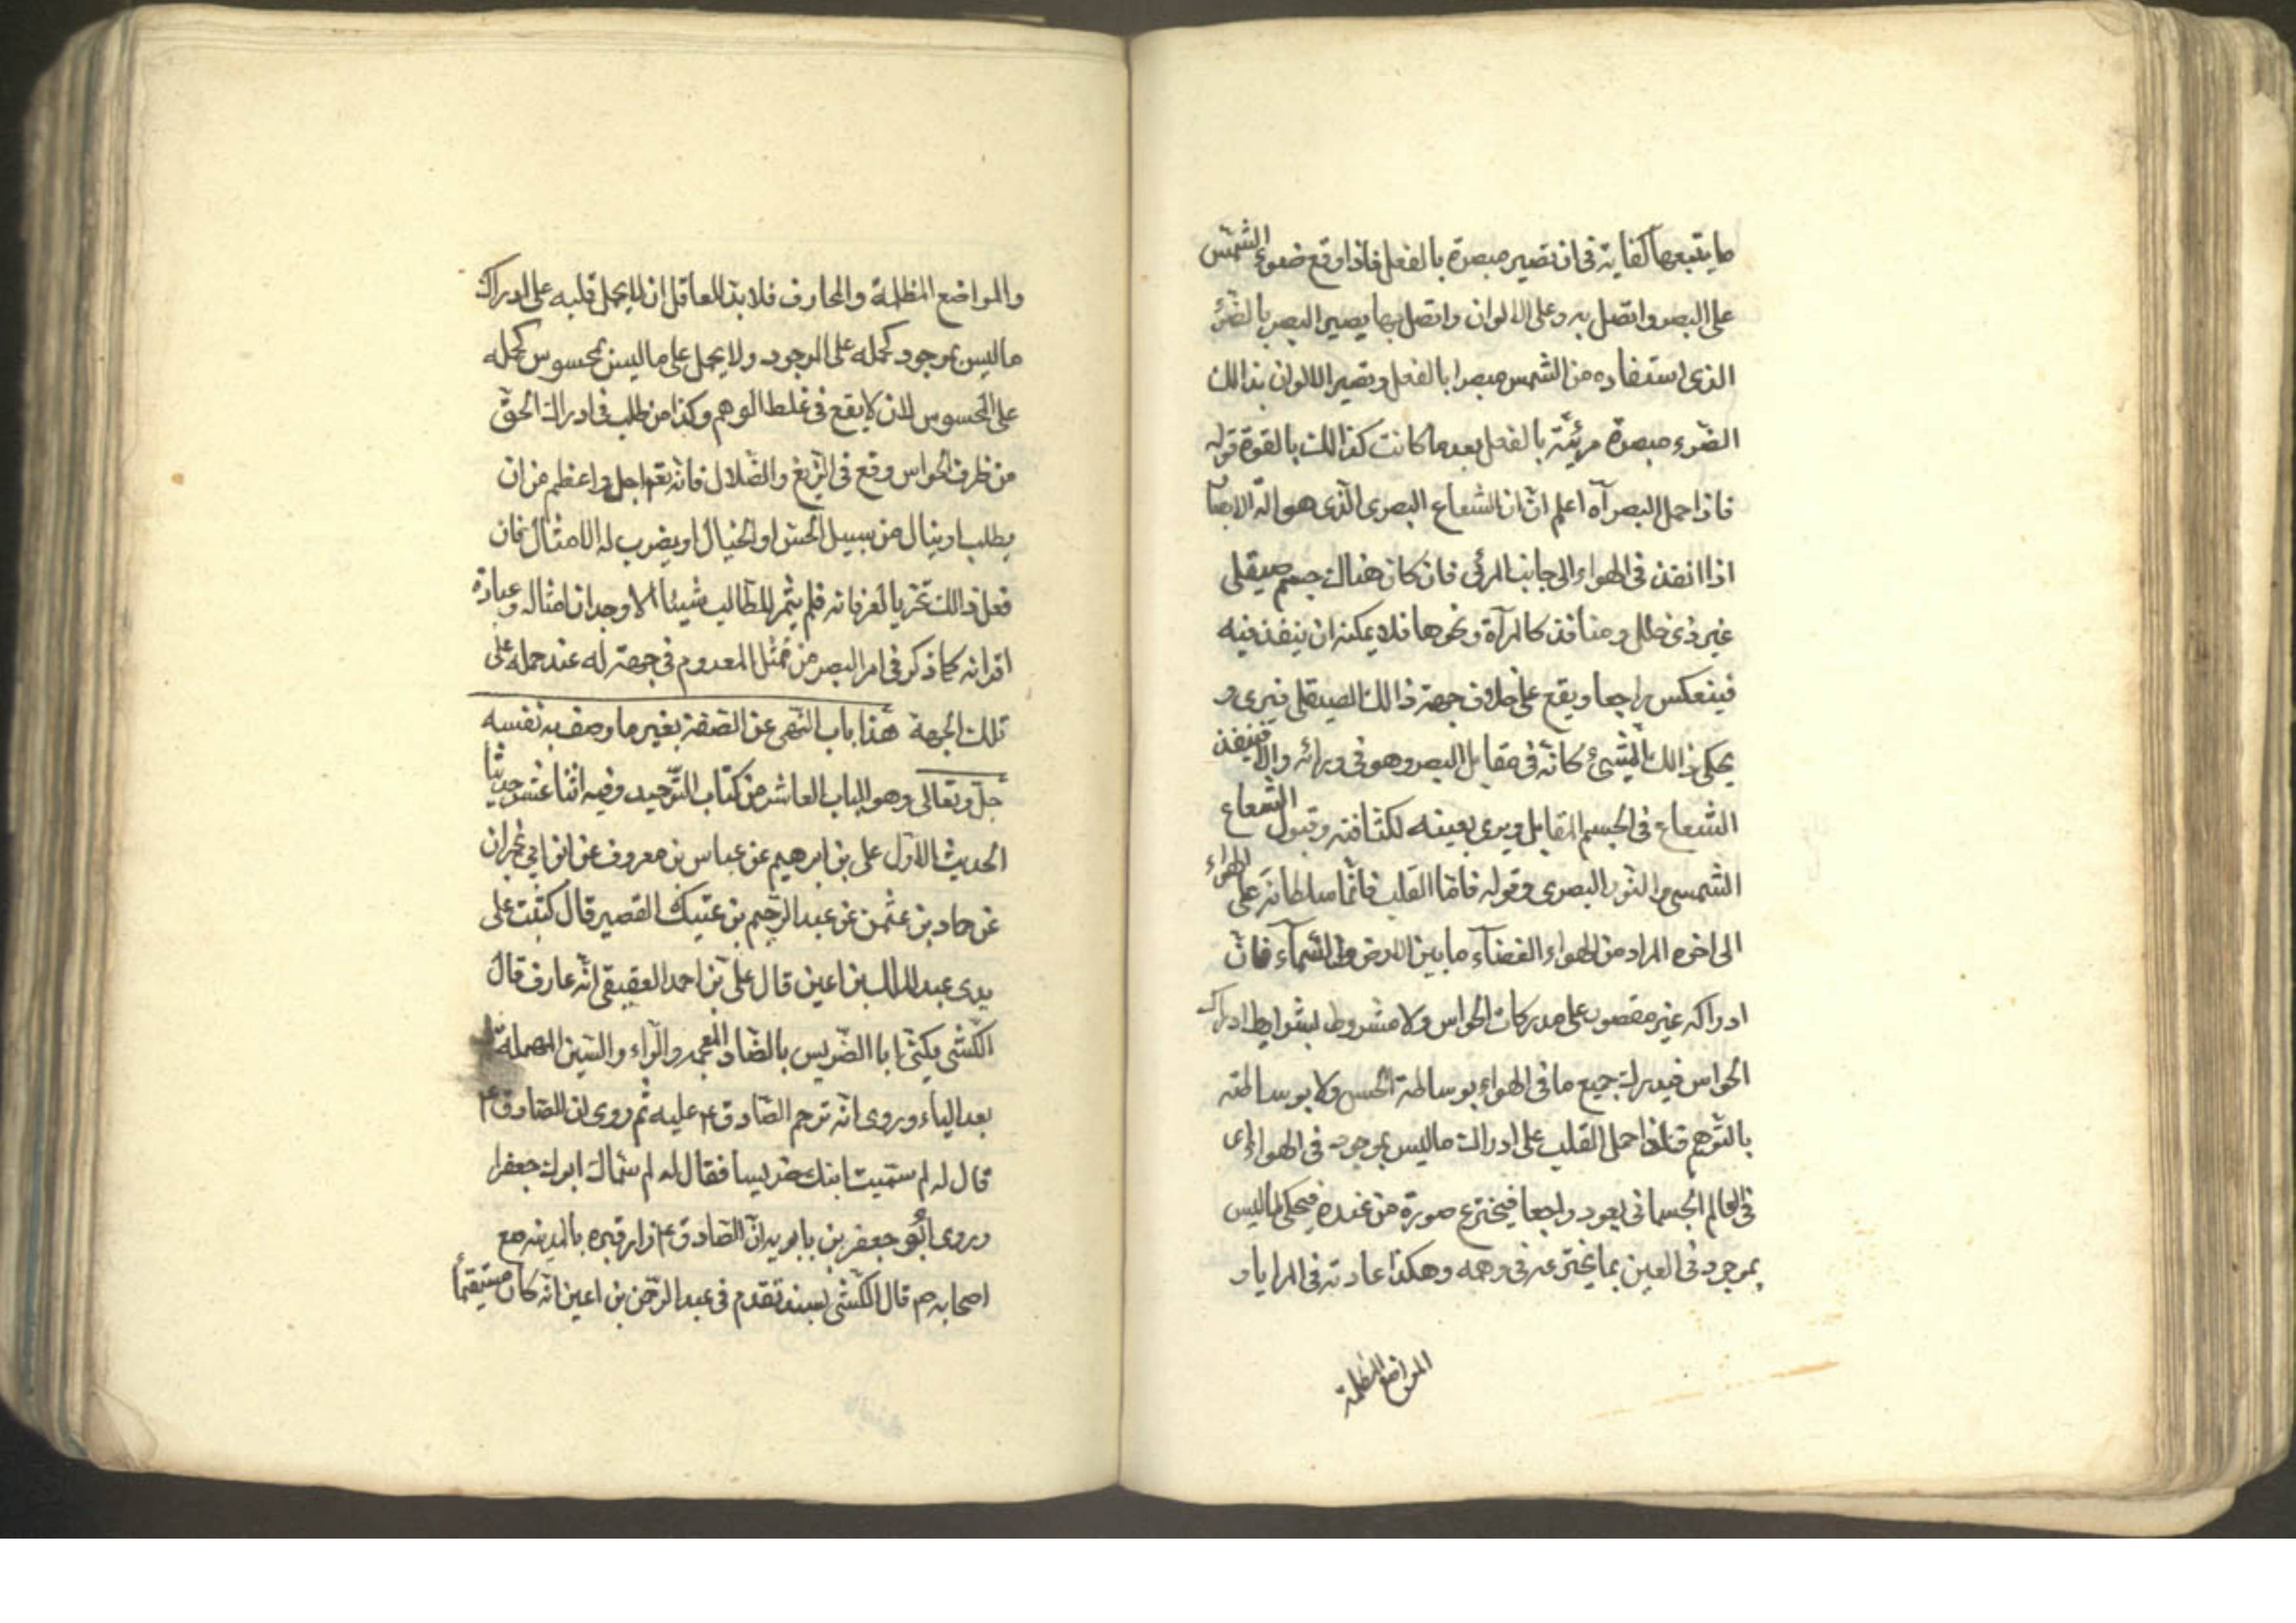 ما يتبعها كفاية في ان تصير مبصرة بالفعل فاذا وقع ضوء الشمس
على البصر واتصل به وعلى الالوان واتصل بها يصير البصر بالضوء
الذى استفاده من الشمس مبصرا بالفعل وتصير الالوان بذالك
الضوء مبصرة مرئية بالفعل بعد ما كانت كذالك بالقوة قوله
فاذا حمل البصر آه اعلم ان الشعاع البصرى الذى هو آلة الابصا
اذا انفذ فى الهواء الى جانب المرئى فان كان هناك جسم صيقلى
غير ذى خلل ومنافذ كالمرآة ونحوها فلا يمكنه ان ينفذ فيه
فينعكس راجعا ويقع على خلاف جهة ذالك الصيقلى فيرى و
يحكى ذالك الشىء كانه فى مقابل البصر وهو فى ورائه والا فينفذ
الشعاع فى الجسم المقابل ويرى بعينه لكثافته وقبول الشعاع
الشمسى والنور البصرى وقوله فاما القلب فانما سلطانه على الهواء
الى اخره المراد من الهواء الفضآء ما بين الارض والسمآء فان
ادراكه غير مقصور على مدركات الحواس ولا مشروط بشرايط ادراك
الحواس فيدرك جميع ما فى الهواء بوساطة الحس ولا بوساطته
بالتوهم فاذا حمل القلب على ادراك ما ليس بموجود فى الهواء اى
فى العالم الجسمانى يعود راجعا فيخترع صورة من عنده فيحكى ما ليس
بموجود فى العين بما يخترعه فى وهمه وهكذا عادته فى المرايا و
المواضع المظلمة
والمواضع المظلمة والمحارف فلا بد للعاقل ان لا يحمل قلبه على ادراك
ما ليس بموجود كحمله على الموجود ولا يحمل على ما ليس بمحسوس كحمله
على المحسوس لان لا يقع فى غلط الوهم وكذا من طلب فى ادراك الحق
من طرف الحواس وقع فى الزيغ والضلال فانه تعم اجل واعظم من ان
يطلب او ينال من سبيل الحس او الخيال او يضرب له الامثال فان
فعل ذالك تحريا لعرفانه فلم يثمر للطالب شيئا الا وجدان امثاله وعبادة
اقرانه كما ذكر فى امر البصر من تمثل المعدوم فى جهة له عند حمله على
تلك الجهة هذا باب النهى عن الصفة بغير ما وصف به نفسه
جل وتعالى وهو الباب العاشر من كتاب التوحيد وفيه اثنا عشر حديثا
الحديث الاول على بن ابرهيم عن عباس بن معروف عن ابن ابى نجران
عن حماد بن عثمن عن عبد الرحيم بن عتيك القصير قال كتبت على
يدى عبد الملك بن اعين قال على بن احمد العقيقى انه عارف قال
الكشى يكنى ابا الضريس بالضاد المعجمه والراء والسين المهملة
بعد الياء وروى انه ترحم الصادق ع عليه ثم روى ان الصادق ع
قال له لم سميت ابنك ضريسا فقال له لم سماك ابوك جعفرا
وروى ابو جعفر بن بابويه ان الصادق ع زار قبره بالمدينه مع
اصحابه م قال الكشى بسند تقدم فى عبد الرحمن بن اعين انه كان مستقيما